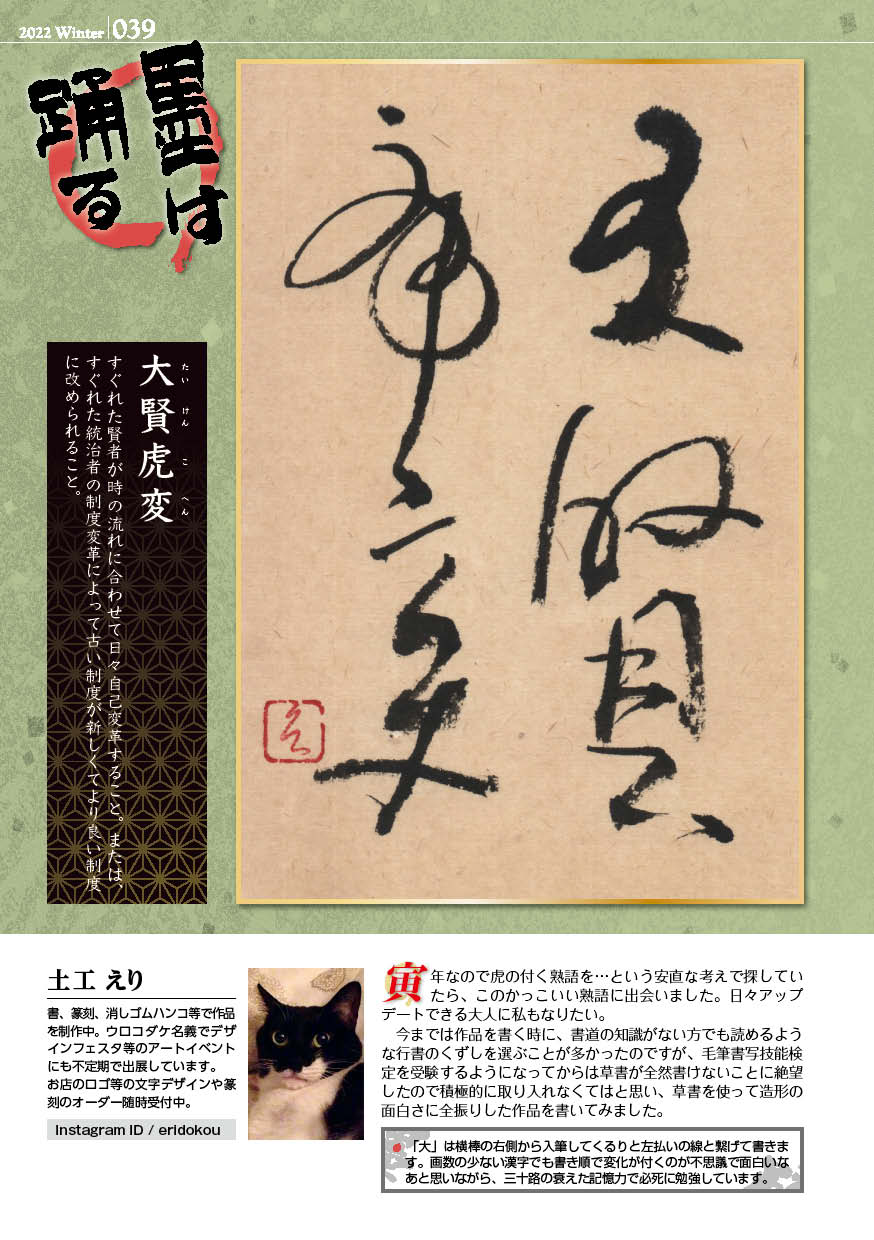 2022 Winter 039
墨は
踊る
大賢
虎変
大賢虎変
たいけんこへん
すぐれた賢者が時の流れに合わせて日々自己変革すること。または、
すぐれた統治者の制度変革によって古い制度が新しくてより良い制度
に改められること。
土工 えり
書、篆刻、消しゴムハンコ等で作品
を制作中。ウロコダケ名義でデザ
インフェスタ等のアートイベント
にも不定期で出展しています。
お店のロゴ等の文字デザインや篆
刻のオーダー随時受付中。
Instagram ID / eridokou
寅年なので虎の付く熟語を…という安直な考えで探してい
たら、このかっこいい熟語に出会いました。日々アップ
デートできる大人に私もなりたい。
今までは作品を書く時に、書道の知識がない方でも読めるよう
な行書のくずしを選ぶことが多かったのですが、毛筆書写技能検
定を受験するようになってからは草書が全然書けないことに絶望
したので積極的に取り入れなくてはと思い、草書を使って造形の
面白さに全振りした作品を書いてみました。
「大」は横棒の右側から入筆してくるりと左払いの線と繋げて書きま
す。画数の少ない漢字でも書き順で変化が付くのが不思議で面白いな
あと思いながら、三十路の衰えた記憶力で必死に勉強しています。